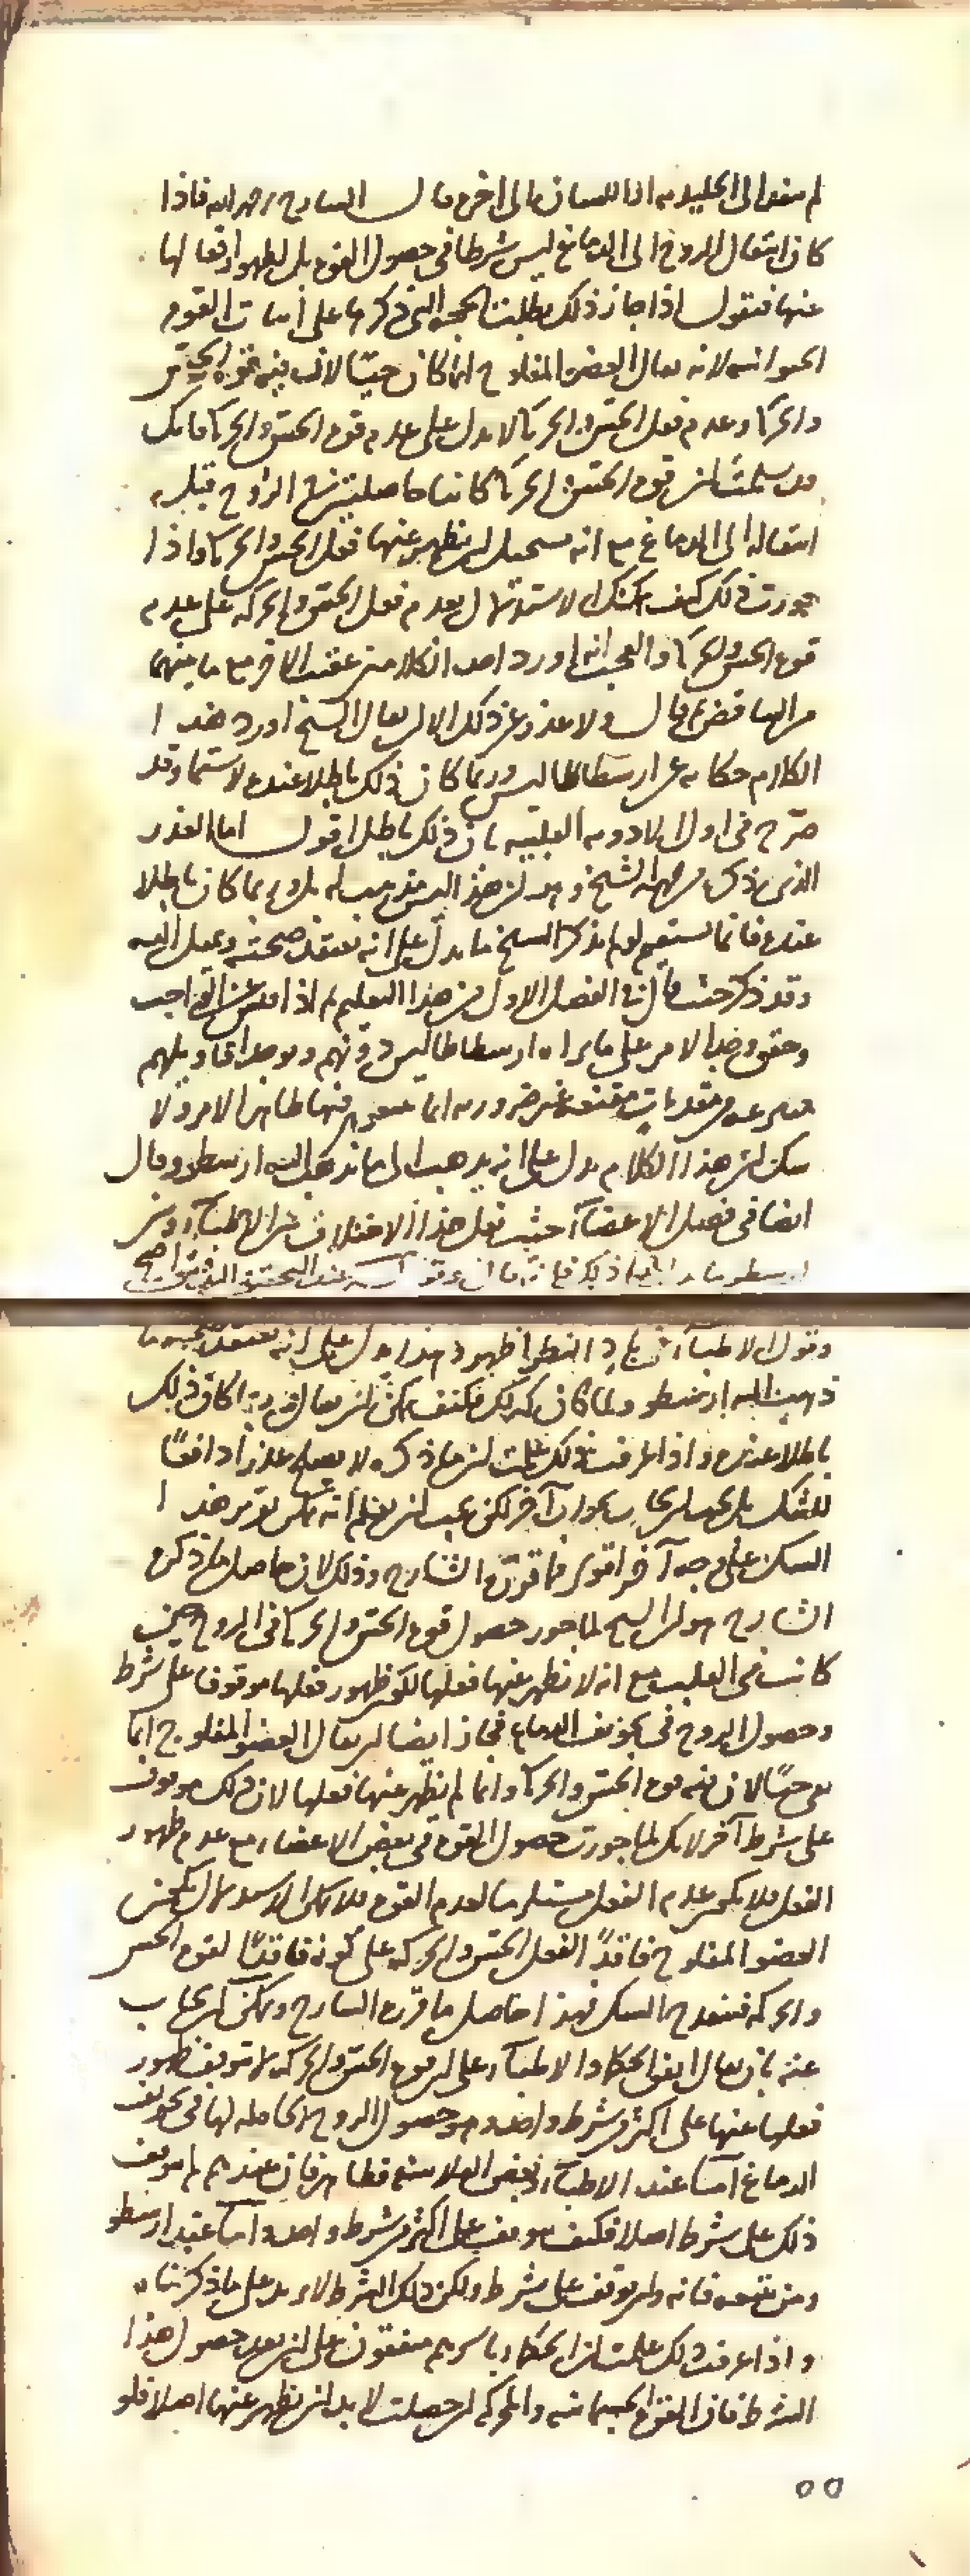 لم ينتقل الى الجليدية الى اللسان والى اخرى قال الشارح رحمه الله فاذا
كان انتقال الروح الى الدماغ ليس شرطا في حصول القوة بل لظهور افعالها
عنها فنقول اذا جاز ذلك بطلت الحجة التي ذكرها على اثبات القوة
الحيوانية لانه يقال العضو المفلوج انما كان حيا لان فيه قوة الحس
والحركة وعدم فعل الحس والحركة لا يدل على عدم قوة الحس والحركة فانك
قد سلمت ان قوة الحس والحركة كانتا حاصلتين في الروح قبل
انتقاله الى الدماغ مع انه يستحيل ان يظهر عنها فعل الحس والحركة واذا
جوزت ذلك كيف يمكنك الاستدلال بعدم فعل الحس والحركة على عدم
قوة الحس والحركة والعجب انه اورد احد الكلامين عقيب الاخر مع ما بينهما
من المناقضة قال ولا عذر عن ذلك الا ان يقال الشيخ اورد هذا
الكلام حكاية عن ارسطاطاليس وربما كان ذلك باطلا عنده لا سيما وقد
صرح في اول الادوية القلبية بان ذلك باطل اقول اما العذر
الذي ذكره من جهة الشيخ وهو ان هذا ليس مذهب له بل ربما كان باطلا
عنده فانما يستقيم لو لم يذكر الشيخ ما يدل على انه يعتقد صحته ويميل اليه
وقد ذكر حيث قال في الفصل الاول من هذا التعليم ثم اذا فتش عن الواجب
وحقق وجد الامر على ما يراه ارسطاطاليس دونهم ويوجد اقاويلهم
منتزعة من مقدمات مقنعة غير ضرورية انما يتبعون فيها ظاهر الامر ولا
شك ان هذا الكلام يدل على انه يذهب الى ما ذهب اليه ارسطو وقال
ايضا في فصل الاعضاء حيث نقل هذا الاختلاف بين الاطباء وبين
ارسطو عند التحقيق
وقول الاطباء في بادي النظر اظهر وهذا يدل على انه يعتقد صحة ما
ذهب اليه ارسطو ولما كان كذلك فكيف يمكن ان يقال انه ربما كان ذلك
باطلا عنده واذا عرفت ذلك علمت ان ما ذكره لا يصلح عذرا دافعا
للشك بل يجب ان يجاب بجواب آخر لكن يجب ان يعلم انه يمكن تقرير هذا
الشك على وجه آخر اقوى مما قرره الشارح وذلك لان حاصل ما ذكره
الشارح هو ان الشيخ لما جوز حصول قوة الحس والحركة في الروح حين
كانت في القلب مع انه لا يظهر عنها فعلها لكون ظهور فعلها موقوفا على شرط
وحصول الروح في تجويف الدماغ فجاز ايضا ان يقال العضو المفلوج انما
بقي حيا لان فيه قوة الحس والحركة وانما لم يظهر عنها فعلها لان ذلك موقوف
على شرط آخر لانك لما جوزت حصول القوة في بعض الاعضاء مع عدم ظهور
الفعل فلا يكون عدم الفعل مستلزما لعدم القوة فلا يمكن الاستدلال بكون
العضو المفلوج فاقدا لفعل الحس والحركة على كونه فاقدا لقوة الحس
والحركة فينقدح الشك فهذا حاصل ما قرره الشارح ويمكن ان يجاب
عنه بان يقال اتفق الحكماء والاطباء على ان قوة الحس والحركة لا يتوقف ظهور
فعلها عنها على اكثر من شرط واحد وهو حصول الروح الحاملة لها في تجويف
الدماغ اما عند الاطباء وبعض الفلاسفة فظاهر فان عندهم لم يتوقف
ذلك على شرط اصلا فكيف يتوقف على اكثر من شرط واحد واما عند ارسطو
ومن تبعه فانه وان يتوقف على شرط ولكن ذلك الشرط لا يزيد على ما ذكرناه
واذا عرفت ذلك علمت ان الحكماء باسرهم متفقون على ان بعد حصول هذا
الشرط فان القوة الحساسة والمحركة ان حصلت لا بد ان يظهر عنها اصلا فلو